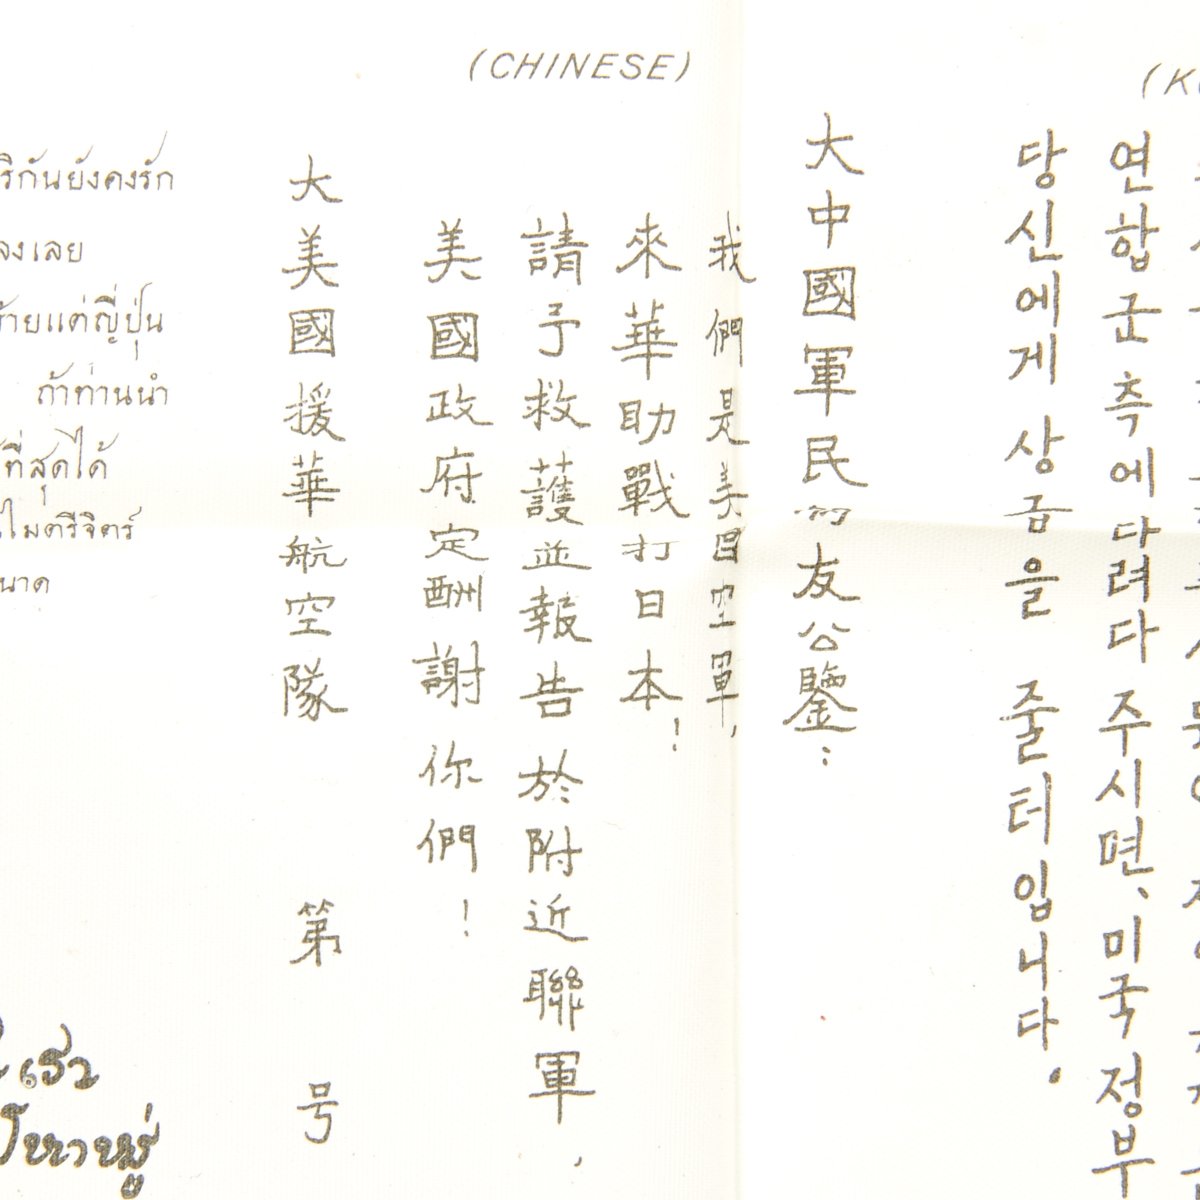 (CHINESE)
大中國軍民的友公鑒：
我們是美国空軍，
來華助戰打日本！
請予救護並報告於附近聯軍，
美國政府定酬謝你們！
大美國援華航空隊 第 号
연합군측에 다려다 주시면、미국정부
당신에게 상금을 줄터입니다.
ริกันยังคงรัก
ลงเลย
้ายแต่ญี่ปุ่น
ถ้าท่านนำ
ที่สุดได้
ไมตรีจิตร์
นาด
เรา